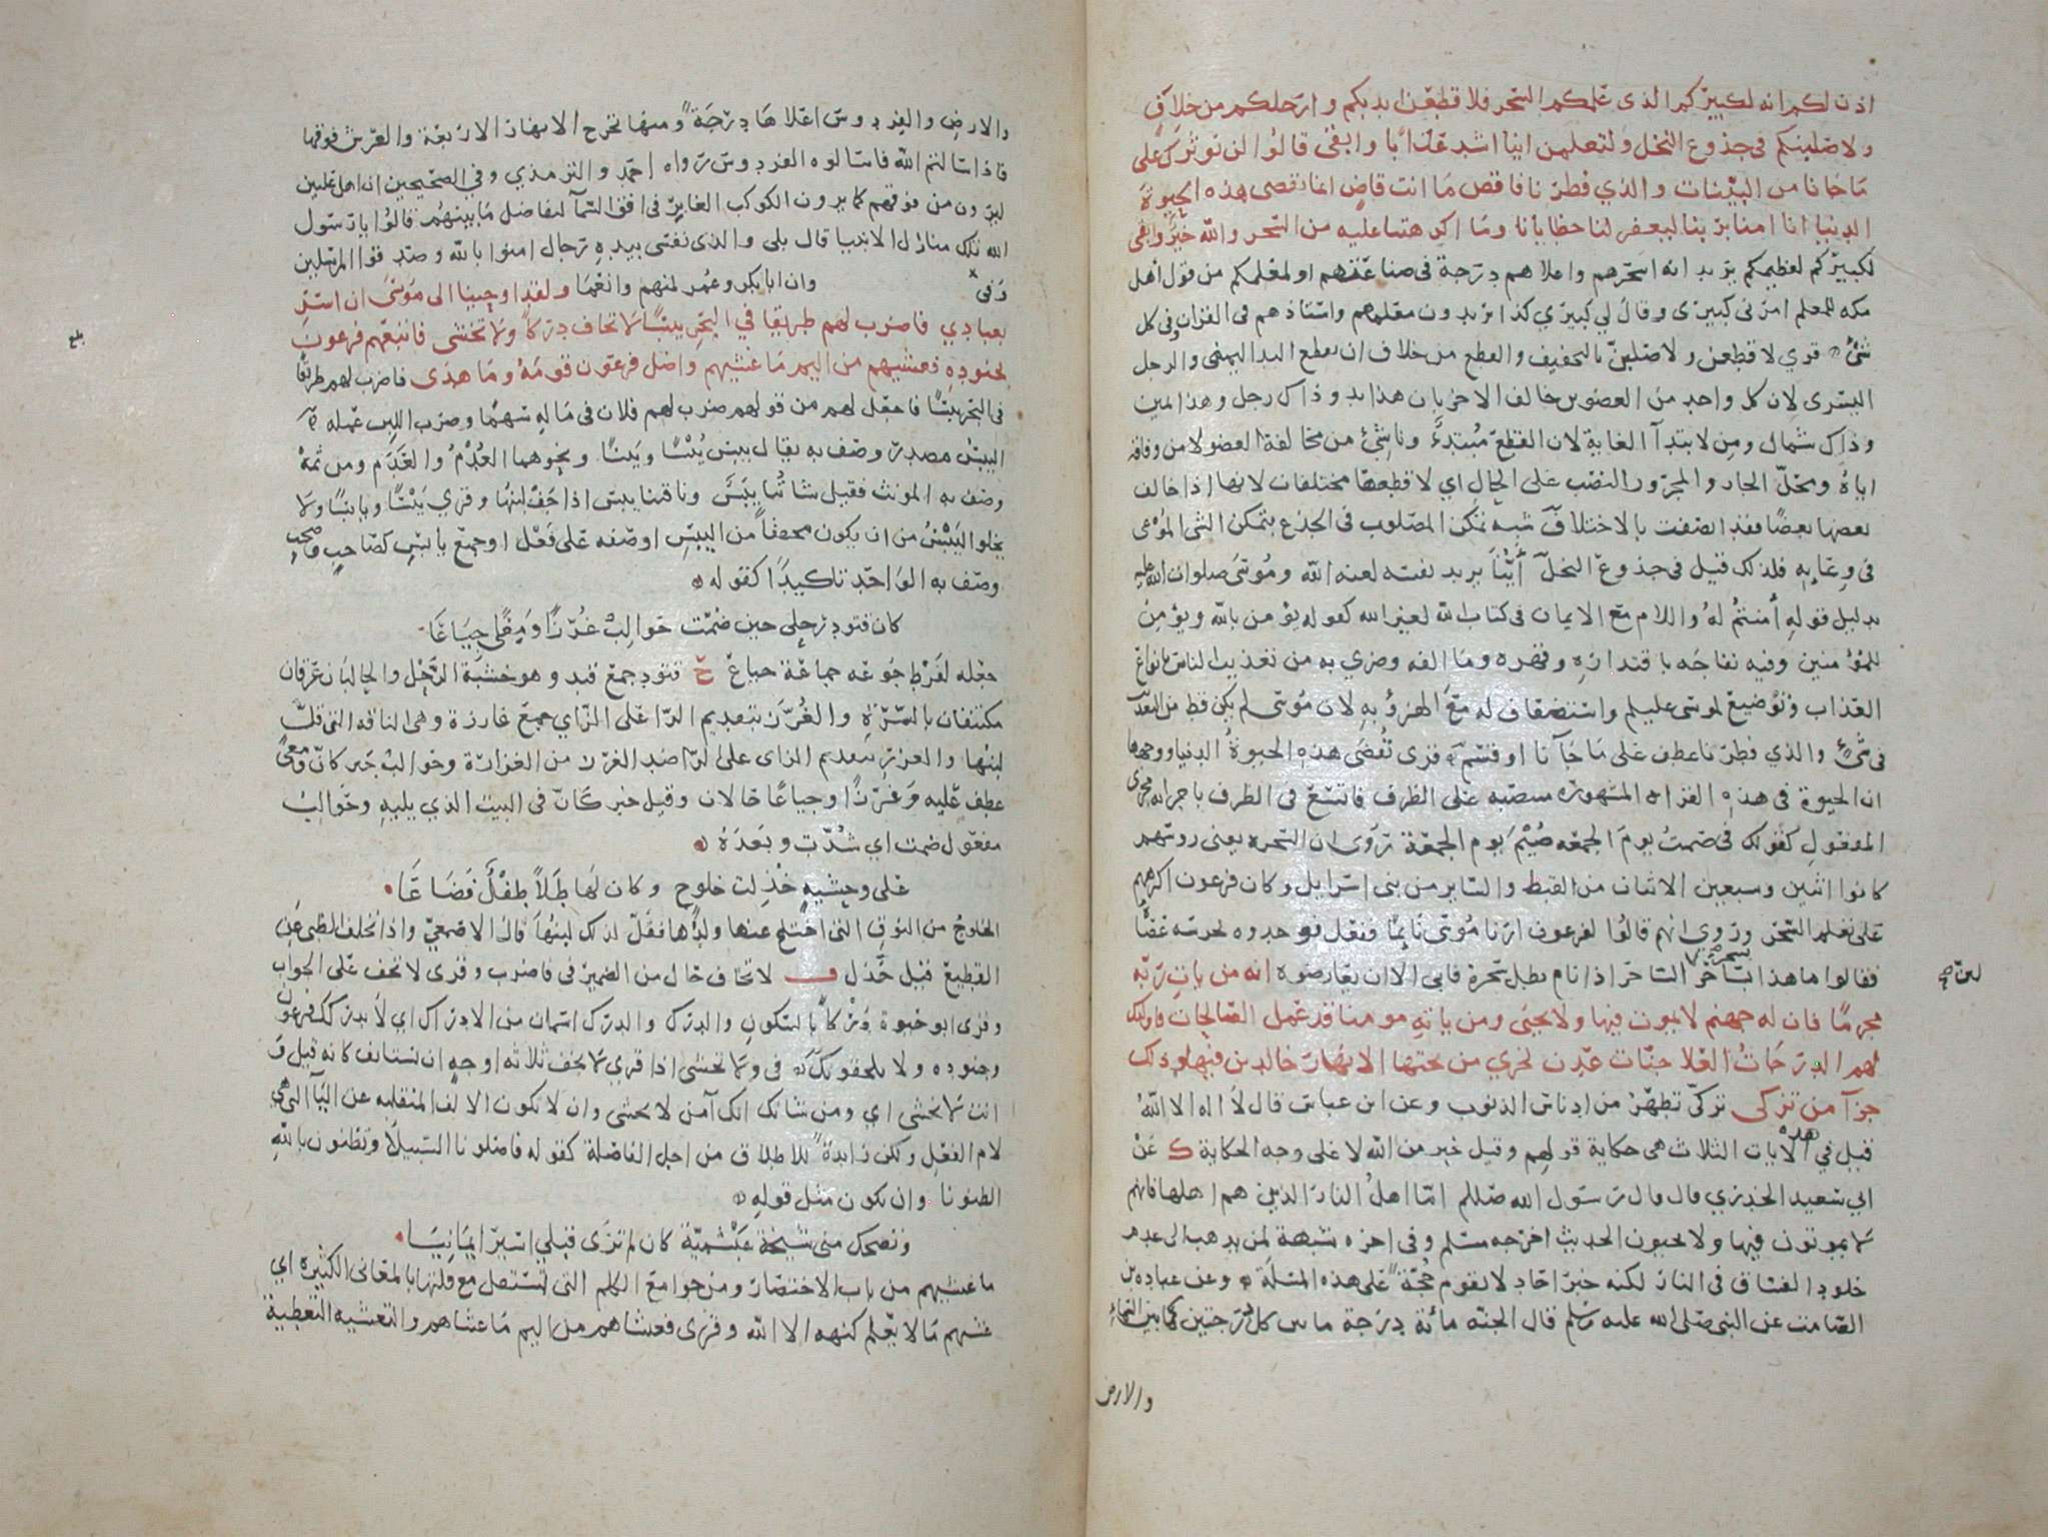 اذن لكم انه لكبيركم الذى علمكم السحر فلا قطعن ايديكم وارجلكم من خلاف
ولاصلبنكم فى جذوع النخل ولتعلمن اينا اشد عذابًا وابقى قالوا لن نوثرك على
ما جانا من البينات والذي فطرنا فاقض ما انت قاضٍ انما تقضى هذه الحيوة
الدنيا انا امنا بربنا ليغفر لنا خطايانا وما اكرهتنا عليه من السحر والله خيرٌ وابقى
لكبيركم لعظيمكم يريد انه اسحرهم واعلاهم درجة فى صناعتهم او لمعلمكم من قول اهل
مكه للمعلم امرنى كبيرى وقال لي كبيري كذا يريدون معلمهم واستاذهم فى القران وفى كل
شئ قري لاقطعن ولاصلبن بالتخفيف والقطع من خلاف ان يقطع اليد اليمنى والرجل
اليسرى لان كل واحد من العضوين خالف الاخر بان هذا يد وذاك رجل وهذا يمين
وذاك شمال ومن لابتدآ الغاية لان القطع مُبتدءٌ وناشئ من مخالفة العضو لا من وفاقه
اياه ومحل الجار والمجرور النصب على الحال اي لاقطعنها مختلفات لانها اذا خالف
بعضها بعضًا فقد اتصفت بالاختلاف شبه تمكن المصلوب فى الجذع بتمكن الشى الموعى
فى وعايه فلذلك قيل فى جذوع النخل أينا يريد نفسه لعنه الله وموسى صلوات الله عليه
بدليل قوله أمنتم له واللام مع الايمان فى كتاب الله لغير الله كقوله يؤمن بالله ويؤمن
للمؤمنين وفيه نفاجه باقتداره وقهره وما الفه وضري به من تعذيب الناس بانواع
العذاب وتوضيع لموسى عليلم واستضعاف له مع الهزؤ به لان موسى لم يكن قط من التعذيب
فى شئ والذي فطرنا عطف على ما جآنا او قسم قرى تُقضَى هذه الحيوةُ الدنيا ووجهها
ان الحيوة فى هذه القراه المشهورة منتصبه على الظرف فاتسع فى الظرف باجرايه مجرى
المفعول كقولك فى صمتُ يومَ الجمعه صِيمَ يوم الجمعة رُوى ان السحره يعنى روسهم
كانوا اثنين وسبعين الاثنان من القبط والساير من بنى اسرايل وكان فرعون اكرههم
على تعلم السحر وروي انهم قالوا لفرعون ارنا موسى نايمًا ففعل فوجدوه تحرسه عصاه
فقالوا ما هذا بسحر الساحر اذا نام بطل سحره فابى الا ان يعارضوه انه من يات ربه
مجرمًا فان له جهنم لا يموت فيها ولا يحيى ومن ياته مومنا قد عمل الصالحات فاوليك
لهم الدرجات العلا جنات عدن تجري من تحتها الانهار خالدين فيها وذلك
جزآ من تزكى تزكّى تطهّر من ادناس الذنوب وعن ابن عباس قال لا اله الا الله
قيل في هذه الايات الثلاث هى حكاية قولهم وقيل خبر من الله لا على وجه الحكاية ك عن
ابي سعيد الخدري قال قال رسول الله صللم امّا اهلُ النار الذين هم اهلها فانهم
لا يموتون فيها ولا يحيون الحديث اخرجه مسلم وفى اخره شبهة لمن يذهب الى عدم
خلود الفساق فى النار لكنه خبر احاد لا تقوم حُجّة على هذه المسلة وعن عباده بن
الصامت عن النبى صلى الله عليه وسلم قال الجنه مائة درجة ما بين كل درجتين كما بين السماء
والارض
والارض والفردوس اعلاها درجة ومنها تخرج الانهار الاربعة والعرش فوقها
فاذا سالتم الله فاسالوه الفردوس رواه احمد والترمذي وفي الصحيحين ان اهل عليين
ليرون من فوقهم كما يرون الكوكب الغابر فى افق السمآ لتفاضل ما بينهم قالوا يا رسول
الله تلك منازل الانبيا قال بلى والذى نفسى بيده رجال امنوا بالله وصدقوا المرسلين
وفى وان ابا بكر وعمر لمنهم وانعما ولقد اوحينا الى موسى ان اسر
بعبادي فاضرب لهم طريقا في البحر يبسًا لا تخاف دركًا ولا تخشى فاتبعهم فرعون
بجنوده فغشيهم من اليم ما غشيهم واضل فرعون قومه وما هدى فاضرب لهم طريقًا
فى البحر يبسًا فاجعل لهم من قولهم ضرب لهم فلان فى ماله سهمًا وضرب اللبن عمله
اليبس مصدر وصف به يقال يبس يُبْسًا ويَبسًا ونحوهما العُدْمُ والعَدَم ومن ثمة
وصف به المونث فقيل شاتُنا يبَسٌ وناقتنا يبس اذا جفّ لبنها وقري يَبْسًا ويابسًا ولا
يخلو اليَبْسُ من ان يكون مخففًا من اليبس او صفه على فَعْل او جمع يابس كصاحب وصحب
وصف به الواحد تاكيدًا كقوله
كان قتود رحلى حين ضمت حوالبْ غُرّزًا ومِعًى جِيَاعًا
جعله لفرط جوعه جماعة جياع ح قتود جمع قتد وهو خشبة الرحل والحالبان عرقان
مكتنفان بالسرة والغُرّز بتقديم الرا على الزاي جمع غارزة وهى الناقه التى قلّ
لبنها والغزر بتقديم الزاى على الرا ضد الغرز من الغزارة وحوالب خبر كان ومعى
عطف عليه وغرزًا وجياعًا حالان وقيل خبر كان فى البيت الذي يليه وحوالبْ
مفعول ضمت اي شُدّت وبعدَهُ
على وحشيه خذلت خلوج وكان لها طَلاً طِفْلٌ فضاعا
الخلوج من النوق التى اختلج عنها ولدها فقلّ لذلك لبنها قال الاصمعيّ واذا تخلف الظبى عن
القطيع قيل خَذل ف لا تخاف حال من الضمير فى فاضرب وقرى لا تخف على الجواب
وقرى ابو حيوة درْكًا بالسكون والدرْك والدرك اسمان من الادراك اي لا يدركك فرعون
وجنوده ولا يلحقونك فى ولا تخشى اذا قري لا تخف ثلاثه اوجه ان يستانف كانه قيل و
انت لا تخشى اي ومن شانك انك آمن لا تخشى وان لا تكون الالف المنقلبه عن اليآ التى هي
لام الفعل ولكن زايدة للاطلاق من اجل الفاصلة كقوله فاضلونا السبيلا وتظنون بالله
الظنونا وان يكون مثل قوله
وتضحك منى شيخة عَبْشميّة كان لم ترَى قبلي اسيرًا يمانيا
ما غشيهم من باب الاختصار ومن جوامع الكلم التى تستقل مع قلتها بالمعانى الكثيره اي
غشيهم ما لا يعلم كنهه الا الله وقرى فغشاهم من اليم ما غشاهم والتغشيه التغطية
بلغ